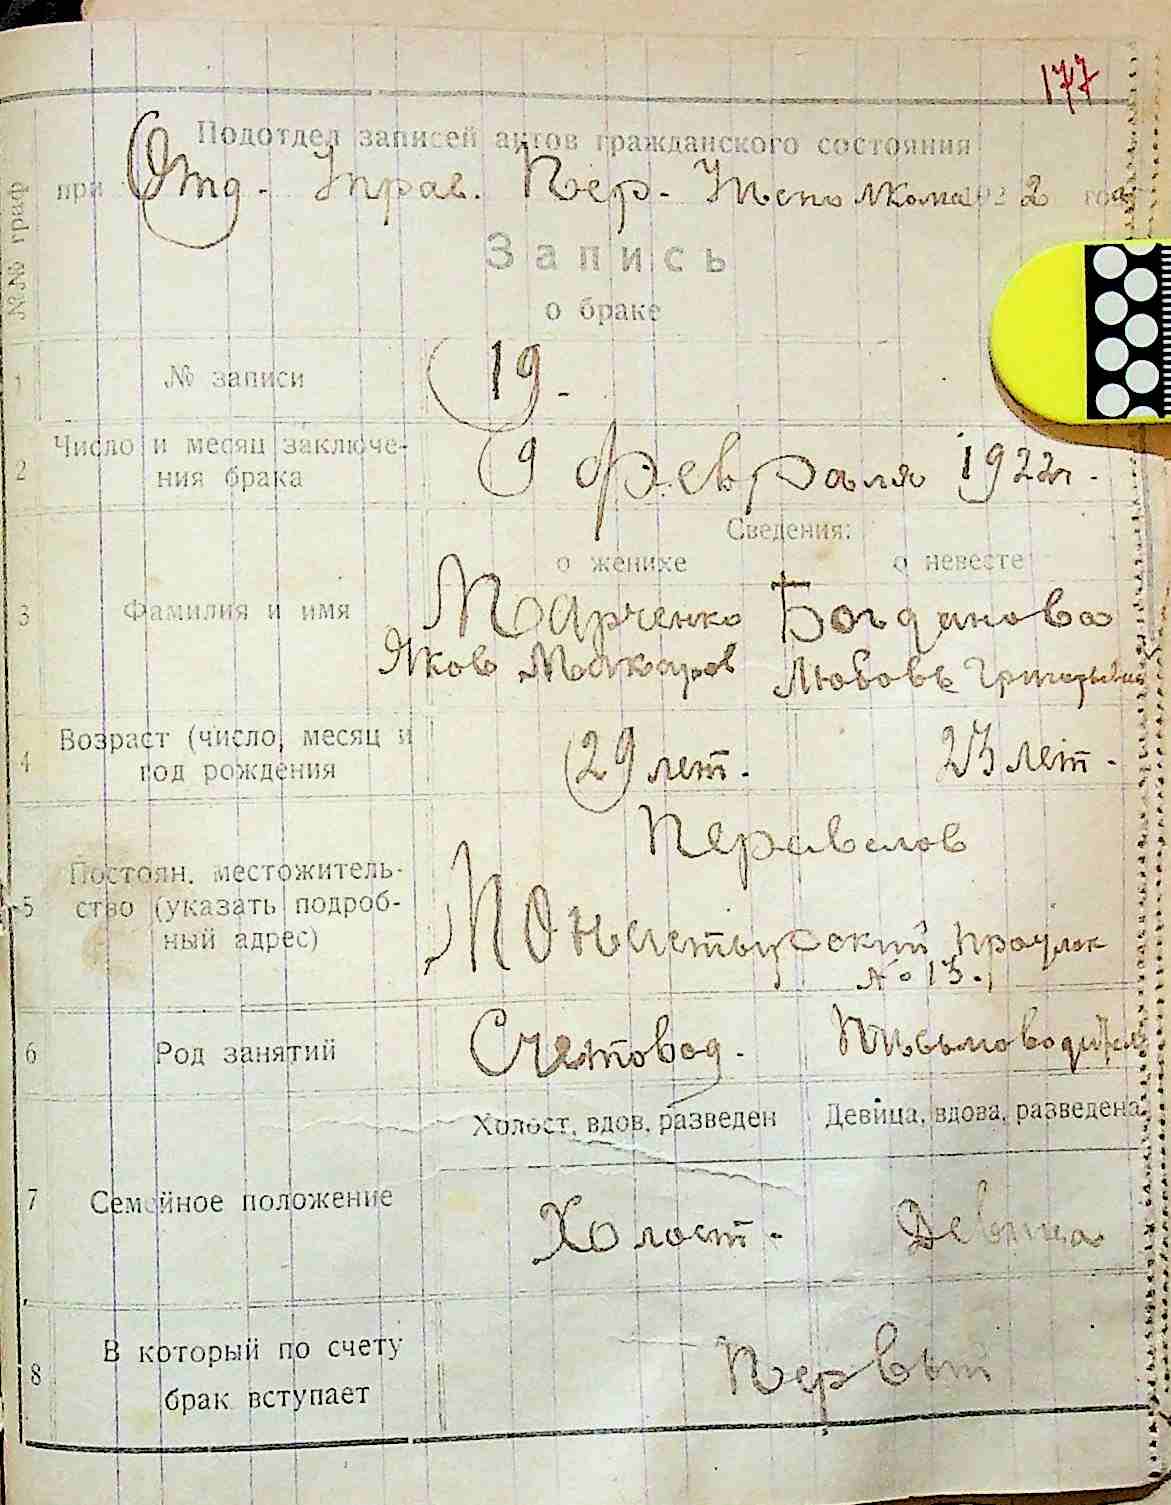 177
Подотдел записей актов гражданского состояния
при Отд. Управ. Пер. Исполкома 1922 года
№№ граф
Запись
о браке
1 № записи 19.
2 Число и месяц заключе-
ния брака 9 Февраля 1922 г.
Сведения:
о женихе о невесте
3 Фамилия и имя Марченко Богданова
Яков Макаров Любовь Григорьевна
4 Возраст (число, месяц и
год рождения 29 лет. 23 лет.
Перевалов
5 Постоян. местожитель-
ство (указать подроб-
ный адрес)
Монастырский
№ 13.
6 Род занятий Счетовод. Письмоводитель
Холост, вдов, разведен Девица, вдова, разведена
7 Семейное положение Холост. Девица
8 В который по счету
брак вступает Первый